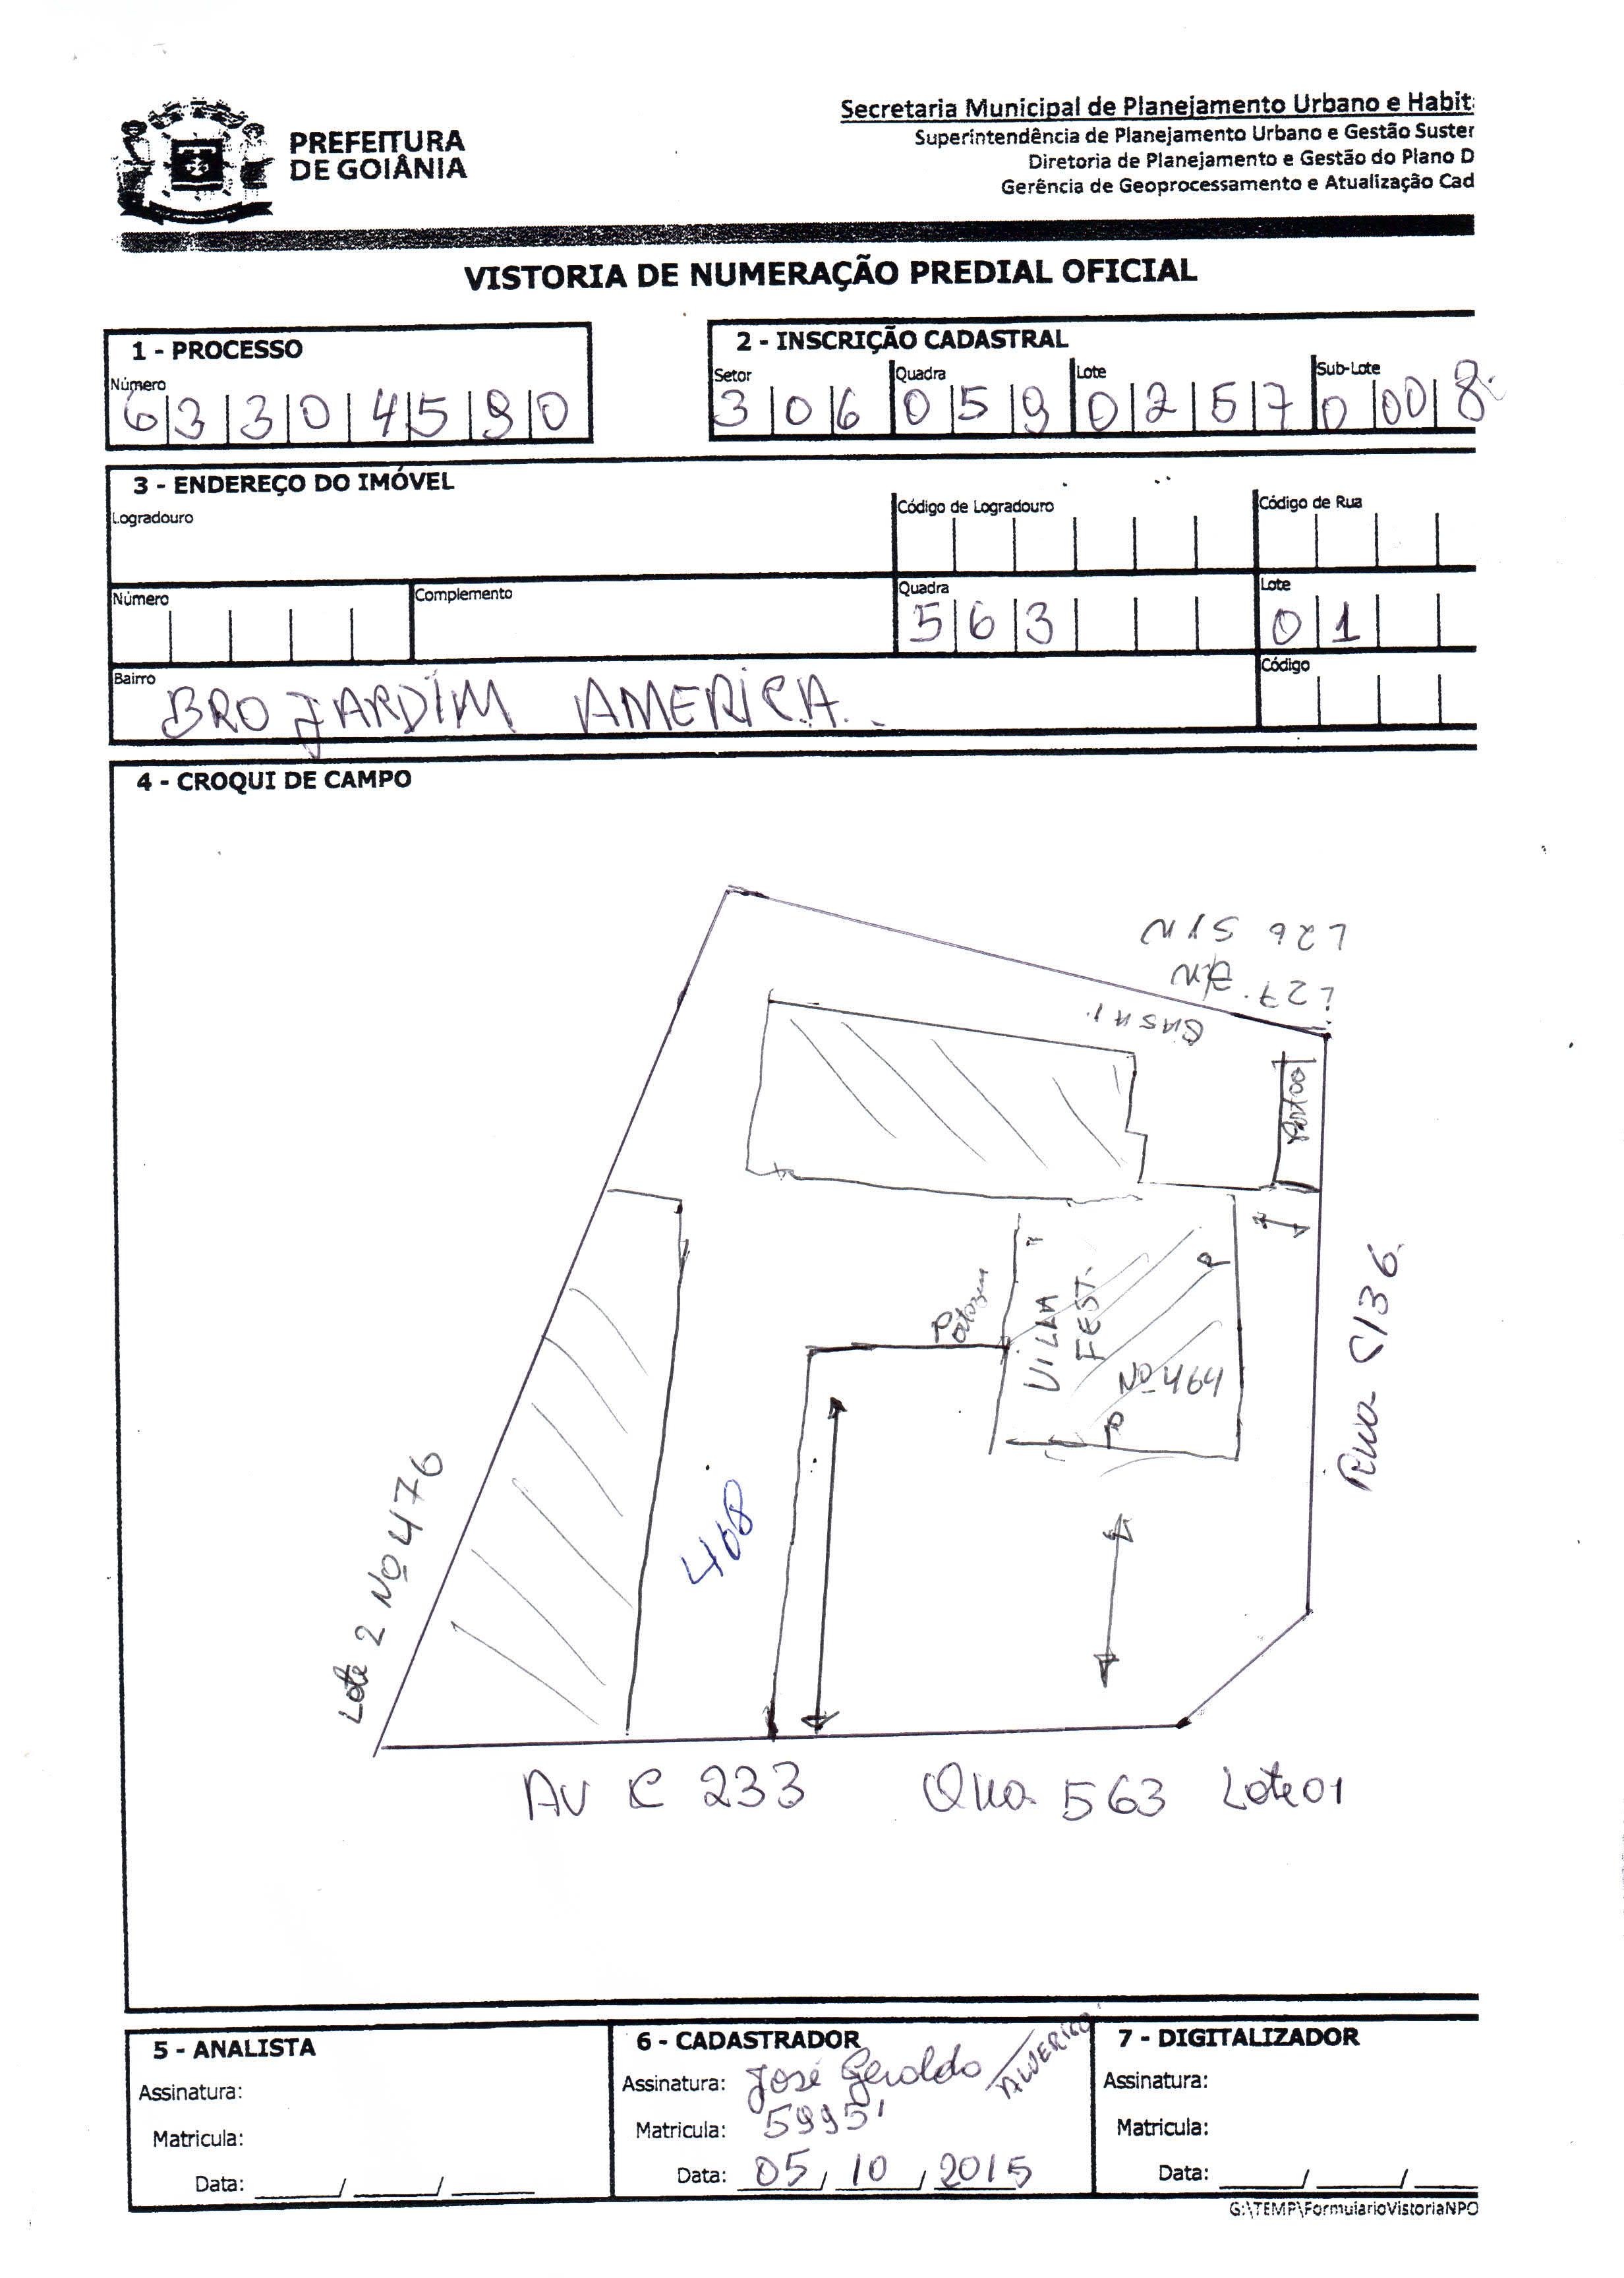 PREFEITURA
DE GOIÂNIA
Secretaria Municipal de Planejamento Urbano e Habit
Superintendência de Planejamento Urbano e Gestão Suster
Diretoria de Planejamento e Gestão do Plano D
Gerência de Geoprocessamento e Atualização Cad
VISTORIA DE NUMERAÇÃO PREDIAL OFICIAL
1 - PROCESSO
Número
6 3 3 0 4 5 9 0
2 - INSCRIÇÃO CADASTRAL
Setor Quadra Lote Sub-Lote
3 0 6 0 5 9 0 2 5 7 0 0 0 8
3 - ENDEREÇO DO IMÓVEL
Logradouro Código de Logradouro Código de Rua
Número Complemento Quadra Lote
5 6 3 0 1
Bairro Código
BRO JARDIM AMERICA
4 - CROQUI DE CAMPO
L26 S/N
L27 S/N
Portao
Portao
VILLA
FEST.
Nº 464
Rua C136
468
Lote 2 Nº 476
AV C 233 Qua 563 Lote 01
5 - ANALISTA
Assinatura:
Matricula:
Data: / /
6 - CADASTRADOR
Assinatura: José Geraldo
Matricula: 5995
Data: 05 / 10 / 2015
7 - DIGITALIZADOR
Assinatura:
Matricula:
Data: / /
G:\TEMP\FormularioVistoriaNPO